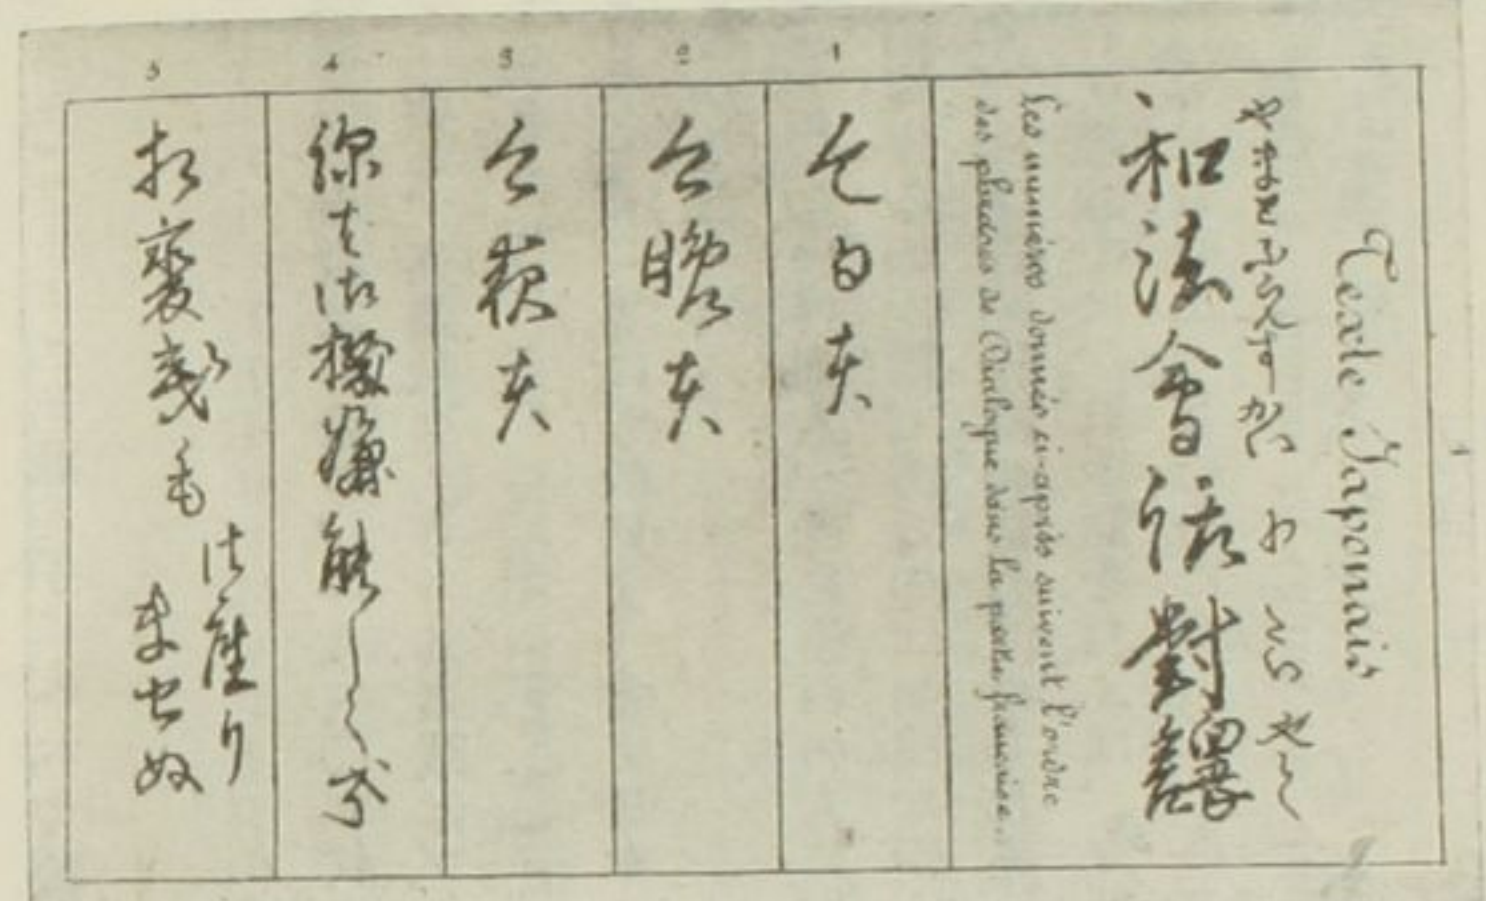 Texte Japonais
やまとふらんす かい わ たい やく
和法會話對譯
Les numéros donnés ci-après suivent l'ordre
des phrases du Dialogue dans la partie française.
1
今日
2
今晩
3
今夜
4
御機嫌能しく
5
相變義も
御座り
ませぬ